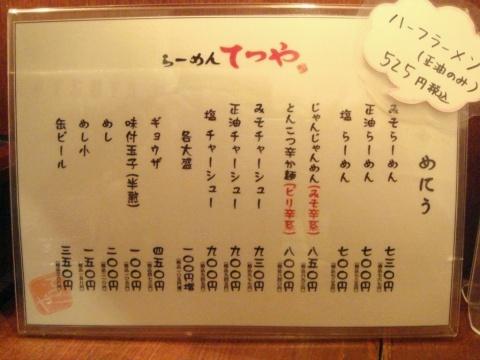 らーめん てつや
ハーフラーメン
(正油のみ)
525円税込
めにう
みそらーめん 七三〇円
正油らーめん 七〇〇円
塩 らーめん 七〇〇円
じゃんじゃんめん(みそ辛系) 八五〇円
とんこつ辛か麺(ピリ辛系) 八〇〇円
みそチャーシュー 九三〇円
正油チャーシュー 九〇〇円
塩 チャーシュー 九〇〇円
各大盛 一〇〇円増
ギョウザ 四五〇円
味付玉子(半熟) 一〇〇円
めし 二〇〇円
めし小 一五〇円
缶ビール 三五〇円